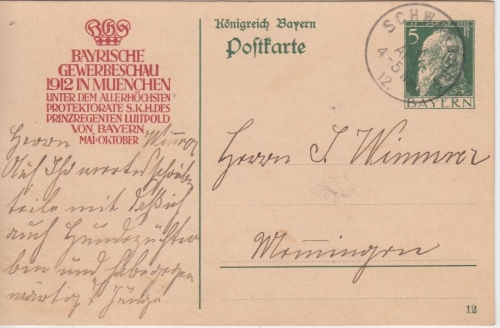 BAYRISCHE
GEWERBESCHAU
1912 IN MUENCHEN
UNTER DEM ALLERHÖCHSTEN
PROTEKTORATE S.K.H.DES
PRINZREGENTEN LUITPOLD
VON BAYERN
MAI-OKTOBER
Königreich Bayern
Postkarte
SCHW
4-5
12.
5 1911 5
BAYERN
Herrn
Auf Ihr wertes Schreiben
teile mit daß ich
auch Hunde
ben und habe gegen
wärtig Junge.
Herrn J. Wimmer
Memmingen
12